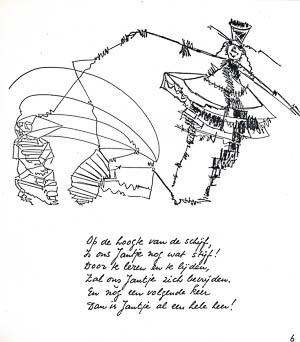 Op de hoogte van de schijf,
Is ons Jantje nog wat stijf!
Door te leren en te lijden,
Zal ons Jantje zich bevrijden.
En nòg een volgende keer
Dan is Jantje al een hele heer!
6